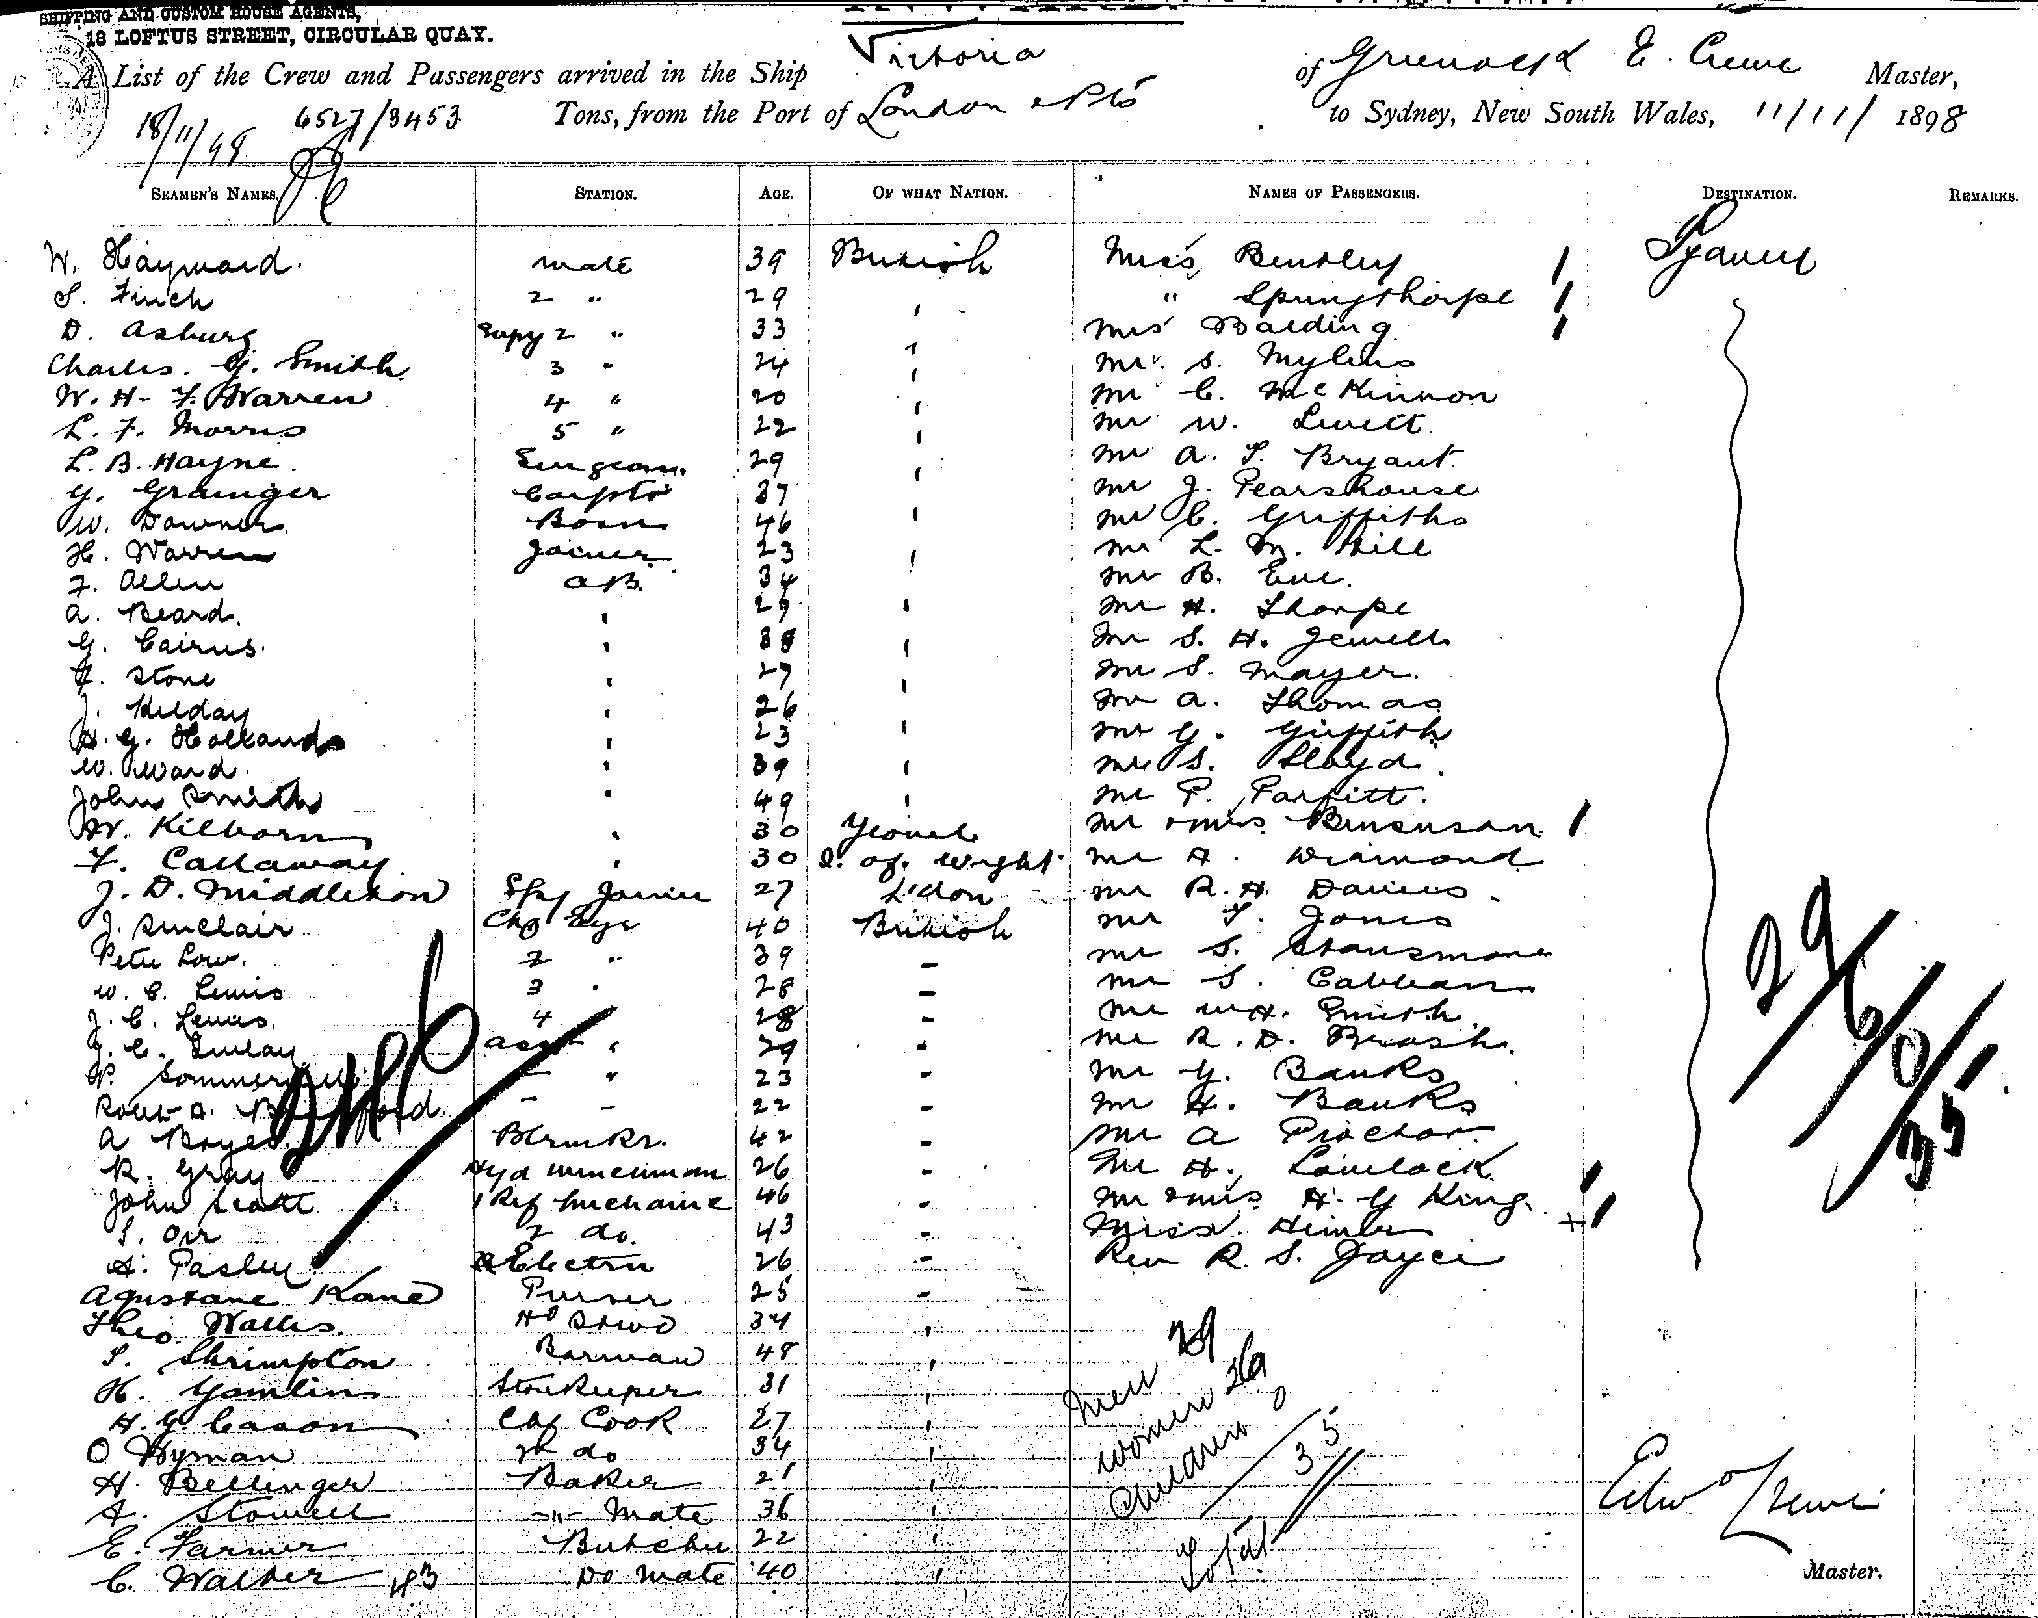 SHIPPING AND CUSTOM HOUSE AGENTS,
18 LOFTUS STREET, CIRCULAR QUAY.
A List of the Crew and Passengers arrived in the Ship Victoria of Greenock E. Crewe Master,
18/11/98 6527/3453 Tons, from the Port of London & Pts to Sydney, New South Wales, 11/11/ 1898
SEAMEN'S NAMES. STATION. AGE. OF WHAT NATION. NAMES OF PASSENGERS. DESTINATION. REMARKS.
W. Hayward. mate 39 British Miss Bentley 1 Sydney
S. Finch 2 " 29 ' " Springthorpe 1
D. Asbury Supy 2 " 33 ' Mrs Balding 1
Charles. G. Smith. 3 " 24 ' Mr. S. Mylius
W. H. F. Warren 4 " 20 ' Mr C. McKinnon
L. F. Morris 5 " 22 ' Mr W. Levett.
L. B. Hayne. Surgeon. 29 ' Mr A. S. Bryant.
G. Grainger Carptr 37 ' Mr J. Pearshouse
W. Downer Bosn 46 ' Mr C. Griffiths
H. Warren Joiner 23 ' Mr L. M. Hill
F. Allen A.B. 34 Mr B. Eve.
A. Beard. ' 29 ' Mr H. Thorpe
G. Cairns. ' 38 ' Mr S. H. Jewell
F. Stone ' 27 ' Mr S. Mayer.
J. Kilday ' 26 ' Mr A. Thomas
H. G. Hollands ' 23 ' Mr G. Griffith
W. Ward ' 39 ' Mr S. Lloyd.
John Smith ' 49 ' Mr P. Parfitt.
W. Kilborn ' 30 Mr & Mrs Bensusan 1
F. Callaway ' 30 I. of. Wight Mr A. Diamond
J. D. Middleton Spl Joiner 27 L'don Mr R. H. Davies
J. Sinclair Chf Engr 40 British Mr T. Jones
Peter Low. 2 " 39 - Mr S.
W. C. Lewis 3 " 28 - Mr S. Cabban
J. C. Lewis. 4 28 - Mr W. H. Smith
J. C. Asst " 29 - Mr R. D. Brash.
P. " 23 - Mr G. Banks
Robt A. - - 22 - Mr H. Banks
A Boyes Blrmkr. 42 - Mr A Proctor.
R. Gray Hyd Winchman 26 - Mr H. Lovelock
John Scott 1 Ref Mechanic 46 - Mr & Mrs H. G King. 1
S. Orr 2 do. 43 - Miss + 1
A. Pasley Electrn 26 - Rev R. S. Joyce
Kane Purser 25 -
Theo. Wallis. Hd Stwd 34 '
S. Shrimpton Barman 48 '
H. Gamlin Storekeeper 31 '
H. G. Cason Chf Cook 27 '
O Hyman 2n do 34 '
H. Bellinger Baker 21 '
A. Stowell -"- Mate 36 '
E. Farmer Butcher 22 '
C. Walker 43 Do Mate 40 '
29/6/0/35
Men 29
Women 6
Children 0
Total 35
Edwd Crewe
Master.